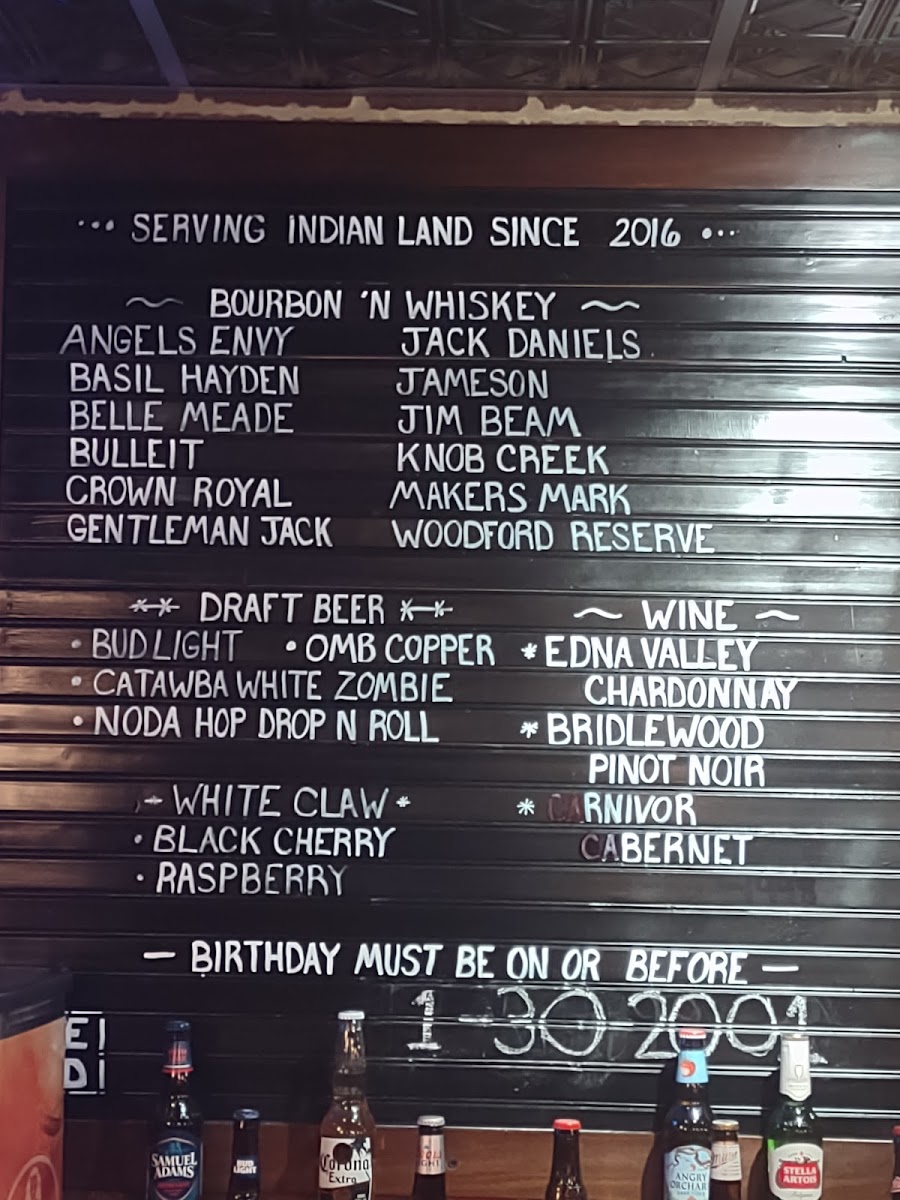 ... SERVING INDIAN LAND SINCE 2016 ...
~ BOURBON 'N WHISKEY ~
ANGELS ENVY
BASIL HAYDEN
BELLE MEADE
BULLEIT
CROWN ROYAL
GENTLEMAN JACK
JACK DANIELS
JAMESON
JIM BEAM
KNOB CREEK
MAKERS MARK
WOODFORD RESERVE
DRAFT BEER
• BUD LIGHT • OMB COPPER
• CATAWBA WHITE ZOMBIE
• NODA HOP DROP N ROLL
WHITE CLAW *
• BLACK CHERRY
• RASPBERRY
~ WINE ~
* EDNA VALLEY
CHARDONNAY
* BRIDLEWOOD
PINOT NOIR
* CARNIVOR
CABERNET
— BIRTHDAY MUST BE ON OR BEFORE —
1-30 2001
SAMUEL
ADAMS
BUD
LIGHT
Corona
Extra
ANGRY
ORCHARD
STELLA
ARTOIS